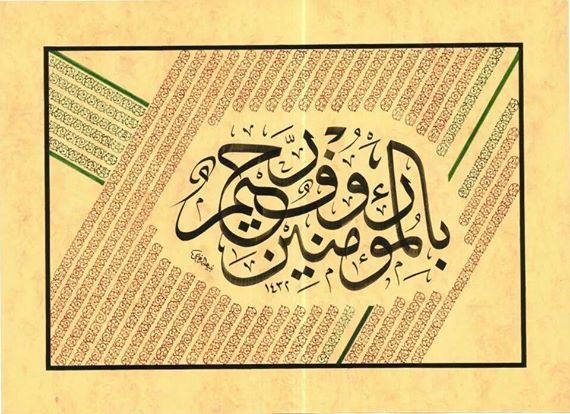 بالمؤمنين رءوف رحيم
١٤٣٢